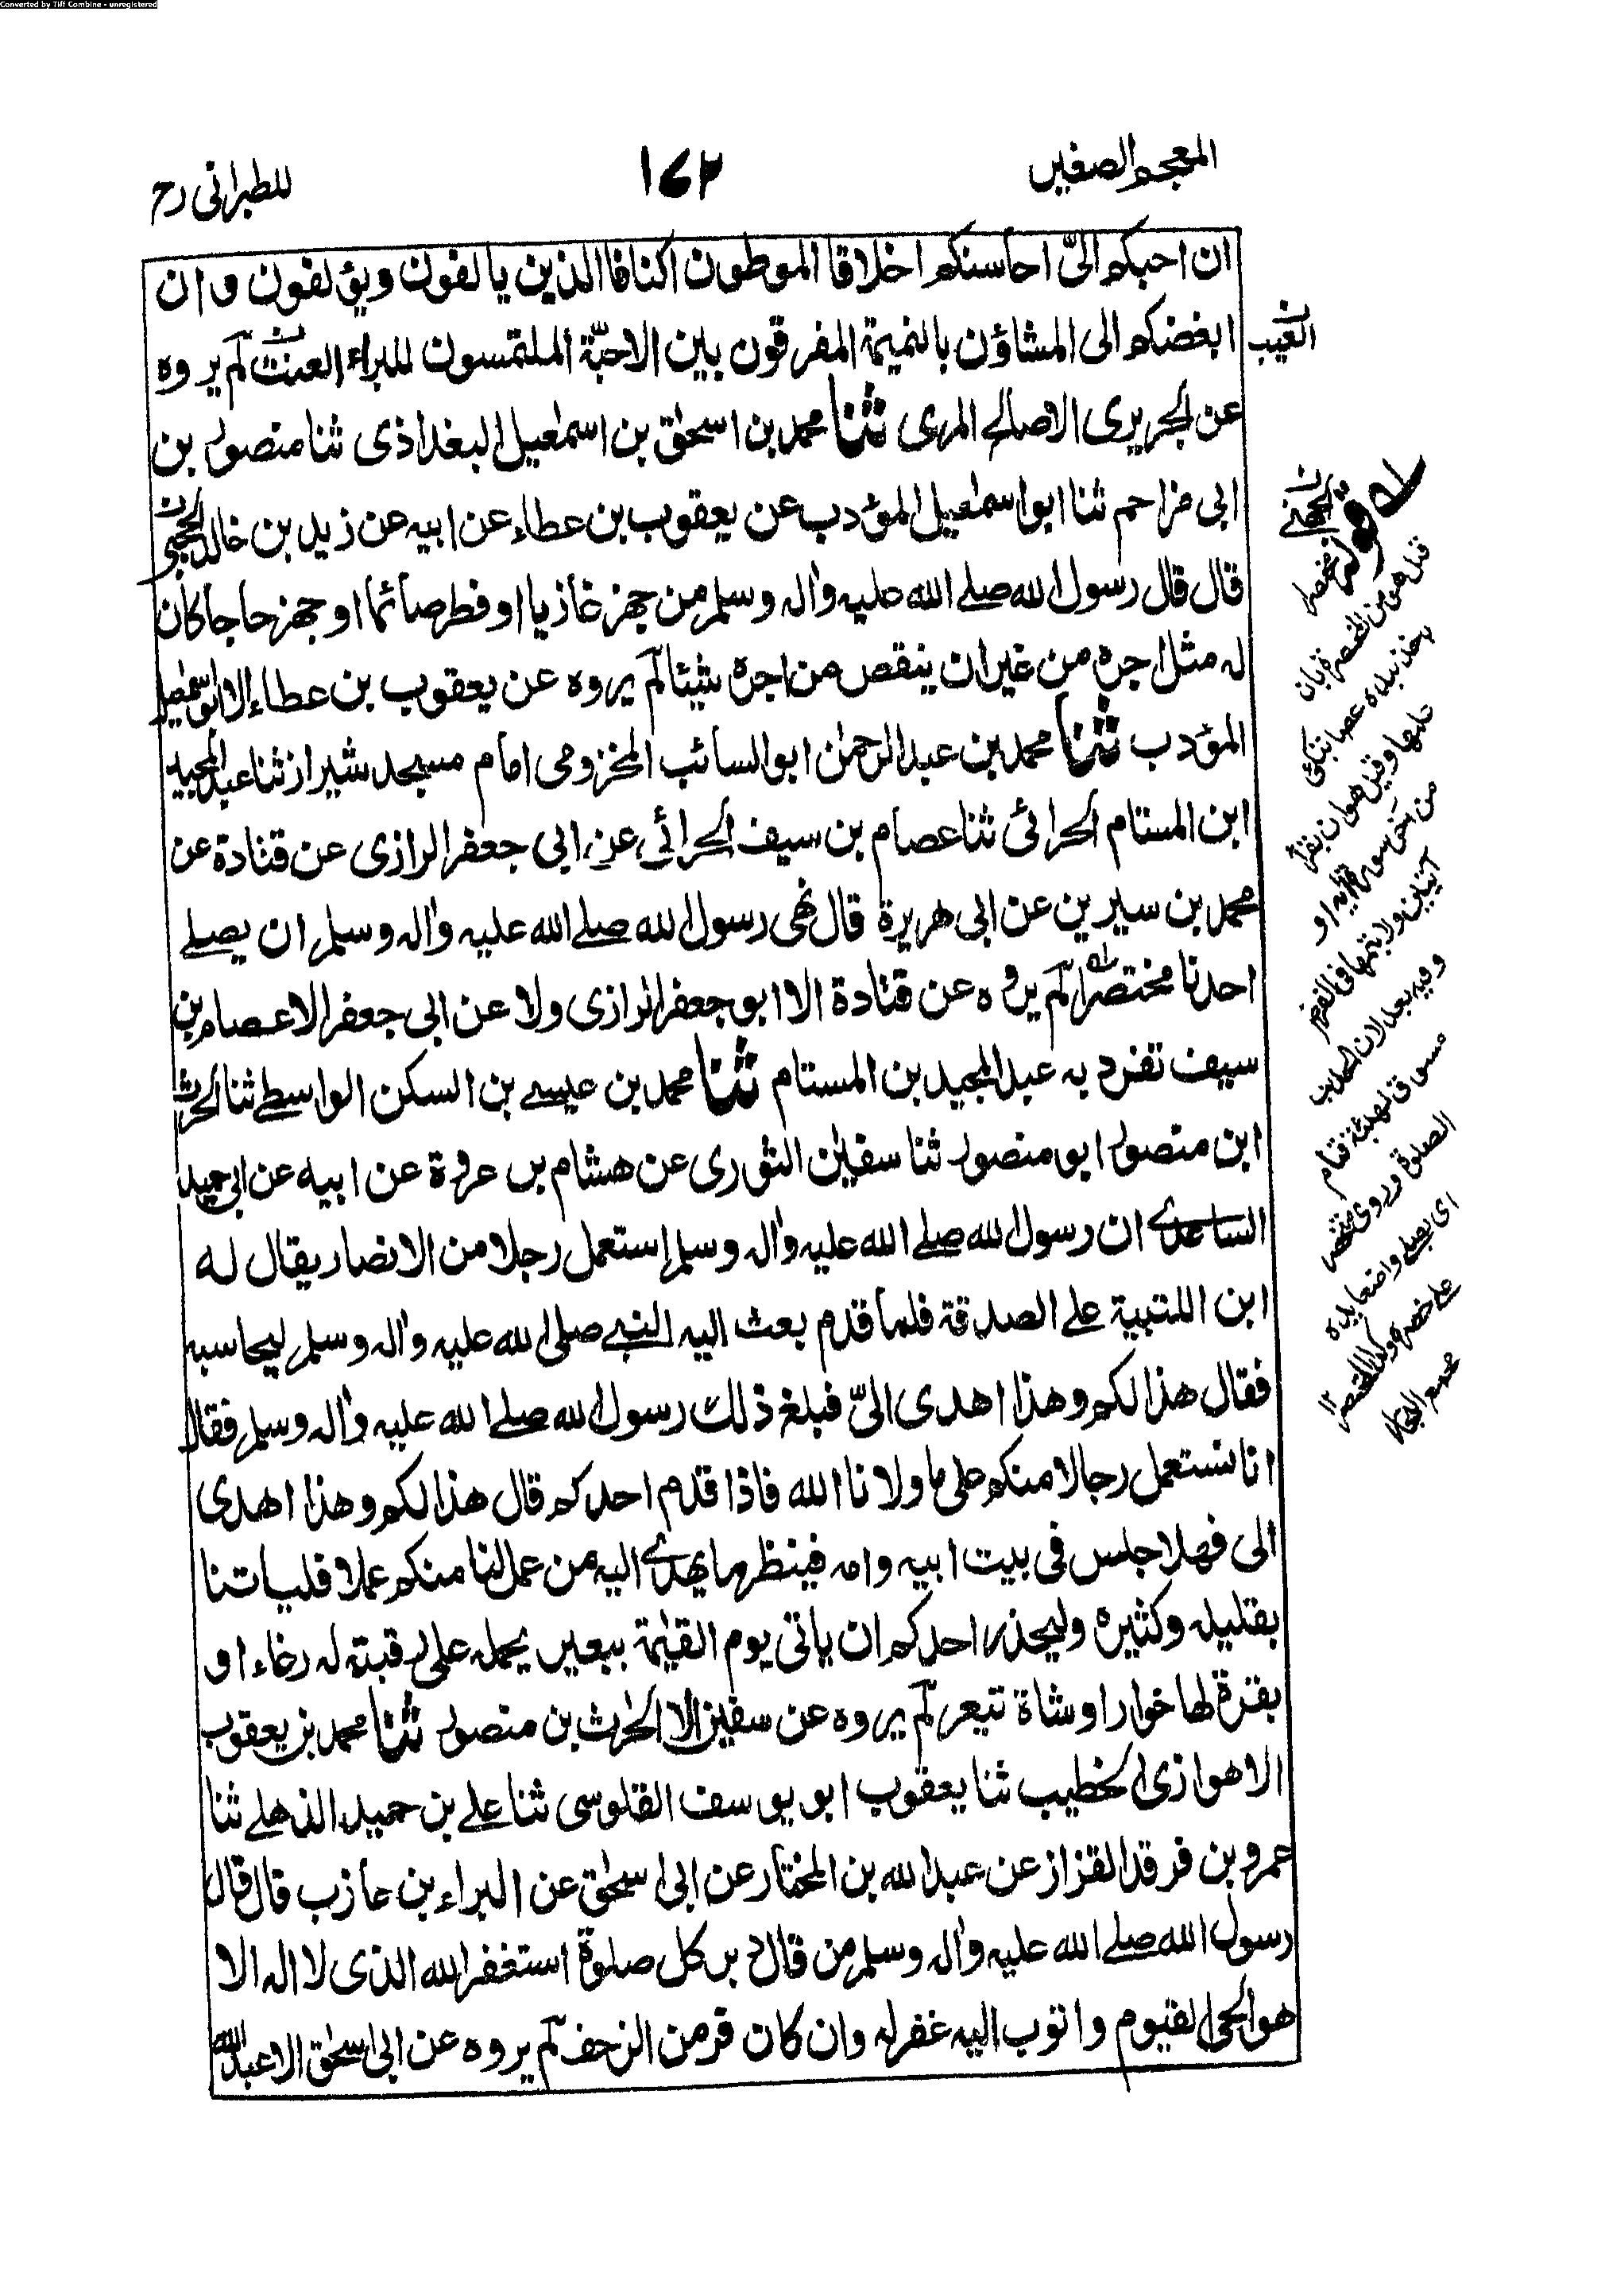 Converted by Tiff Combine - unregistered
المعجم الصغير
١٧٢
للطبرانى رح
ان احبكم الىّ احاسنكم اخلاقا الموطون اكنافا الذين يالفون ويؤلفون وان
ابغضكم الى المشاؤن بالنميمة المفرقون بين الاحبّة الملتمسون للبراء العنت لم يروه
العيب
عن الجريرى الاصالح المرى ثنا محمد بن اسحٰق بن اسمٰعيل البغداذى ثنا منصور بن
ابى مزاحم ثنا ابو اسمٰعيل المؤدب عن يعقوب بن عطاء عن ابيه عن زيد بن خالد
قال قال رسول الله صلے الله عليه واٰله وسلم من جهز غازيا او فطر صائما او جهز حاجا كان
له مثل اجره من غير ان ينقص من اجره شيئا لم يروه عن يعقوب بن عطاء الا ابو اسمٰعيل
المؤدب ثنا محمد بن عبد الرحمٰن ابو السائب المخزومى امام مسجد شيراز ثنا عبد المجيد
ابن المستام الحرائى ثنا عصام بن سيف الحرائى عن ابى جعفر الرازى عن قتادة عن
محمد بن سيرين عن ابى هريرة قال نهى رسول الله صلے الله عليه واٰله وسلم ان يصلے
احدنا مختصرا لم يروه عن قتادة الا ابو جعفر الرازى ولا عن ابى جعفر الا عصام بن
سيف تفرد به عبد المجيد بن المستام ثنا محمد بن عيسے بن السكن الواسطے ثنا الحرث
ابن منصور ابو منصور ثنا سفيٰن الثورى عن هشام بن عروة عن ابيه عن ابى حميد
الساعدے ان رسول الله صلے الله عليه واٰله وسلم استعمل رجلا من الانصار يقال له
ابن اللتبية علے الصدقة فلما قدم بعث اليه النبے صلى الله عليه واٰله وسلم ليحاسبه
فقال هذا لكم وهذا اهدى الىّ فبلغ ذلك رسول الله صلے الله عليه واٰله وسلم فقال
انا نستعمل رجالا منكم على ما ولانا الله فاذا قدم احدكم قال هذا لكم وهذا اهدى
الى فهلا جلس فى بيت ابيه وامه فينظر ما يهدے اليه من عمل لنا منكم عملا فلياتنا
بقليله وكثيره وليحذر احدكم ان ياتى يوم القيٰمة ببعير يحمله على رقبته له رغاء او
بقرة لها خوار او شاة تيعر لم يروه عن سفيٰن الا الحٰرث بن منصور ثنا محمد بن يعقوب
الاهوازى الخطيب ثنا يعقوب ابو يوسف القلوسى ثنا علے بن حميد الذهلے ثنا
عمرو بن فرقد القزاز عن عبد الله بن المختار عن ابى اسحٰق عن البراء بن عازب قال قال
رسول الله صلے الله عليه واٰله وسلم من قال دبر كل صلوة استغفر الله الذى لا اله الا
هو الحى القيوم واتوب اليه غفر له وان كان فر من الزحف لم يروه عن ابى اسحٰق الا عبد الله
قيل هو من المخصرة بان
ياخذ بيده عصا يتكئ
عليها وقيل هو ان يقرأ
من اخر سورة اية او
آيتين ولا يتمها فى الفرض
وفيه بعد لان الحديث
مسوق لهيئة قيام
الصلوة وروى متخصرا
اى يصلے واضعا يده
علے خصره وكذا المختصر ١٢
مجمع البحار